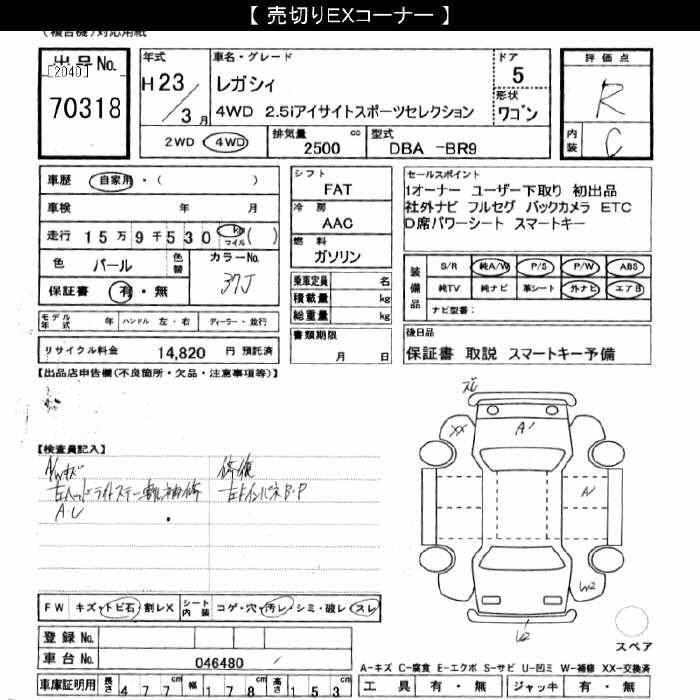 【 売切りEXコーナー 】
(複合機)対応用紙
出品No.
[2040]
70318
年式
H23/3月
車名・グレード
レガシィ
4WD 2.5iアイサイトスポーツセレクション
ドア
5
形状
ワゴン
評価点
R
内装
C
2WD 4WD
排気量 cc
2500
型式
DBA -BR9
車歴 自家用・( )
車検 年 月
走行 15万9千530 km マイル ( )
色 パール 色替
カラーNo.
37J
保証書 有・無
シフト
FAT
冷房
AAC
燃料
ガソリン
乗車定員 名
積載量 kg
総重量 kg
セールスポイント
1オーナー ユーザー下取り 初出品
社外ナビ フルセグ バックカメラ ETC
D席パワーシート スマートキー
装備品
S/R 純A/W P/S P/W ABS
純TV 純ナビ 革シート 外ナビ エアB
ナビ型番:
モデル年式 年 ハンドル 左・右 ディーラー・並行
リサイクル料金 14,820 円 預託済
書類期限
月 日
後日品
保証書 取説 スマートキー予備
【出品店申告欄(不良箇所・欠品・注意事項等)】
【検査員記入】
A/Wキズ
左ヘッドライトステー割れ補修
修復
左トインパネB・P
ズレ
XX
A1
A1
W2
W2
FW キズ・トビ石・割レX
シート内装 コゲ・穴・汚レ・シミ・破レ・スレ
登録No.
車台No. 046480
車庫証明用 長さ 477cm 幅 178cm 高さ 153cm
スペア
A-キズ C-腐食 E-エクボ S-サビ U-凹ミ W-補修 XX-交換済
工具 有・無 ジャッキ 有・無